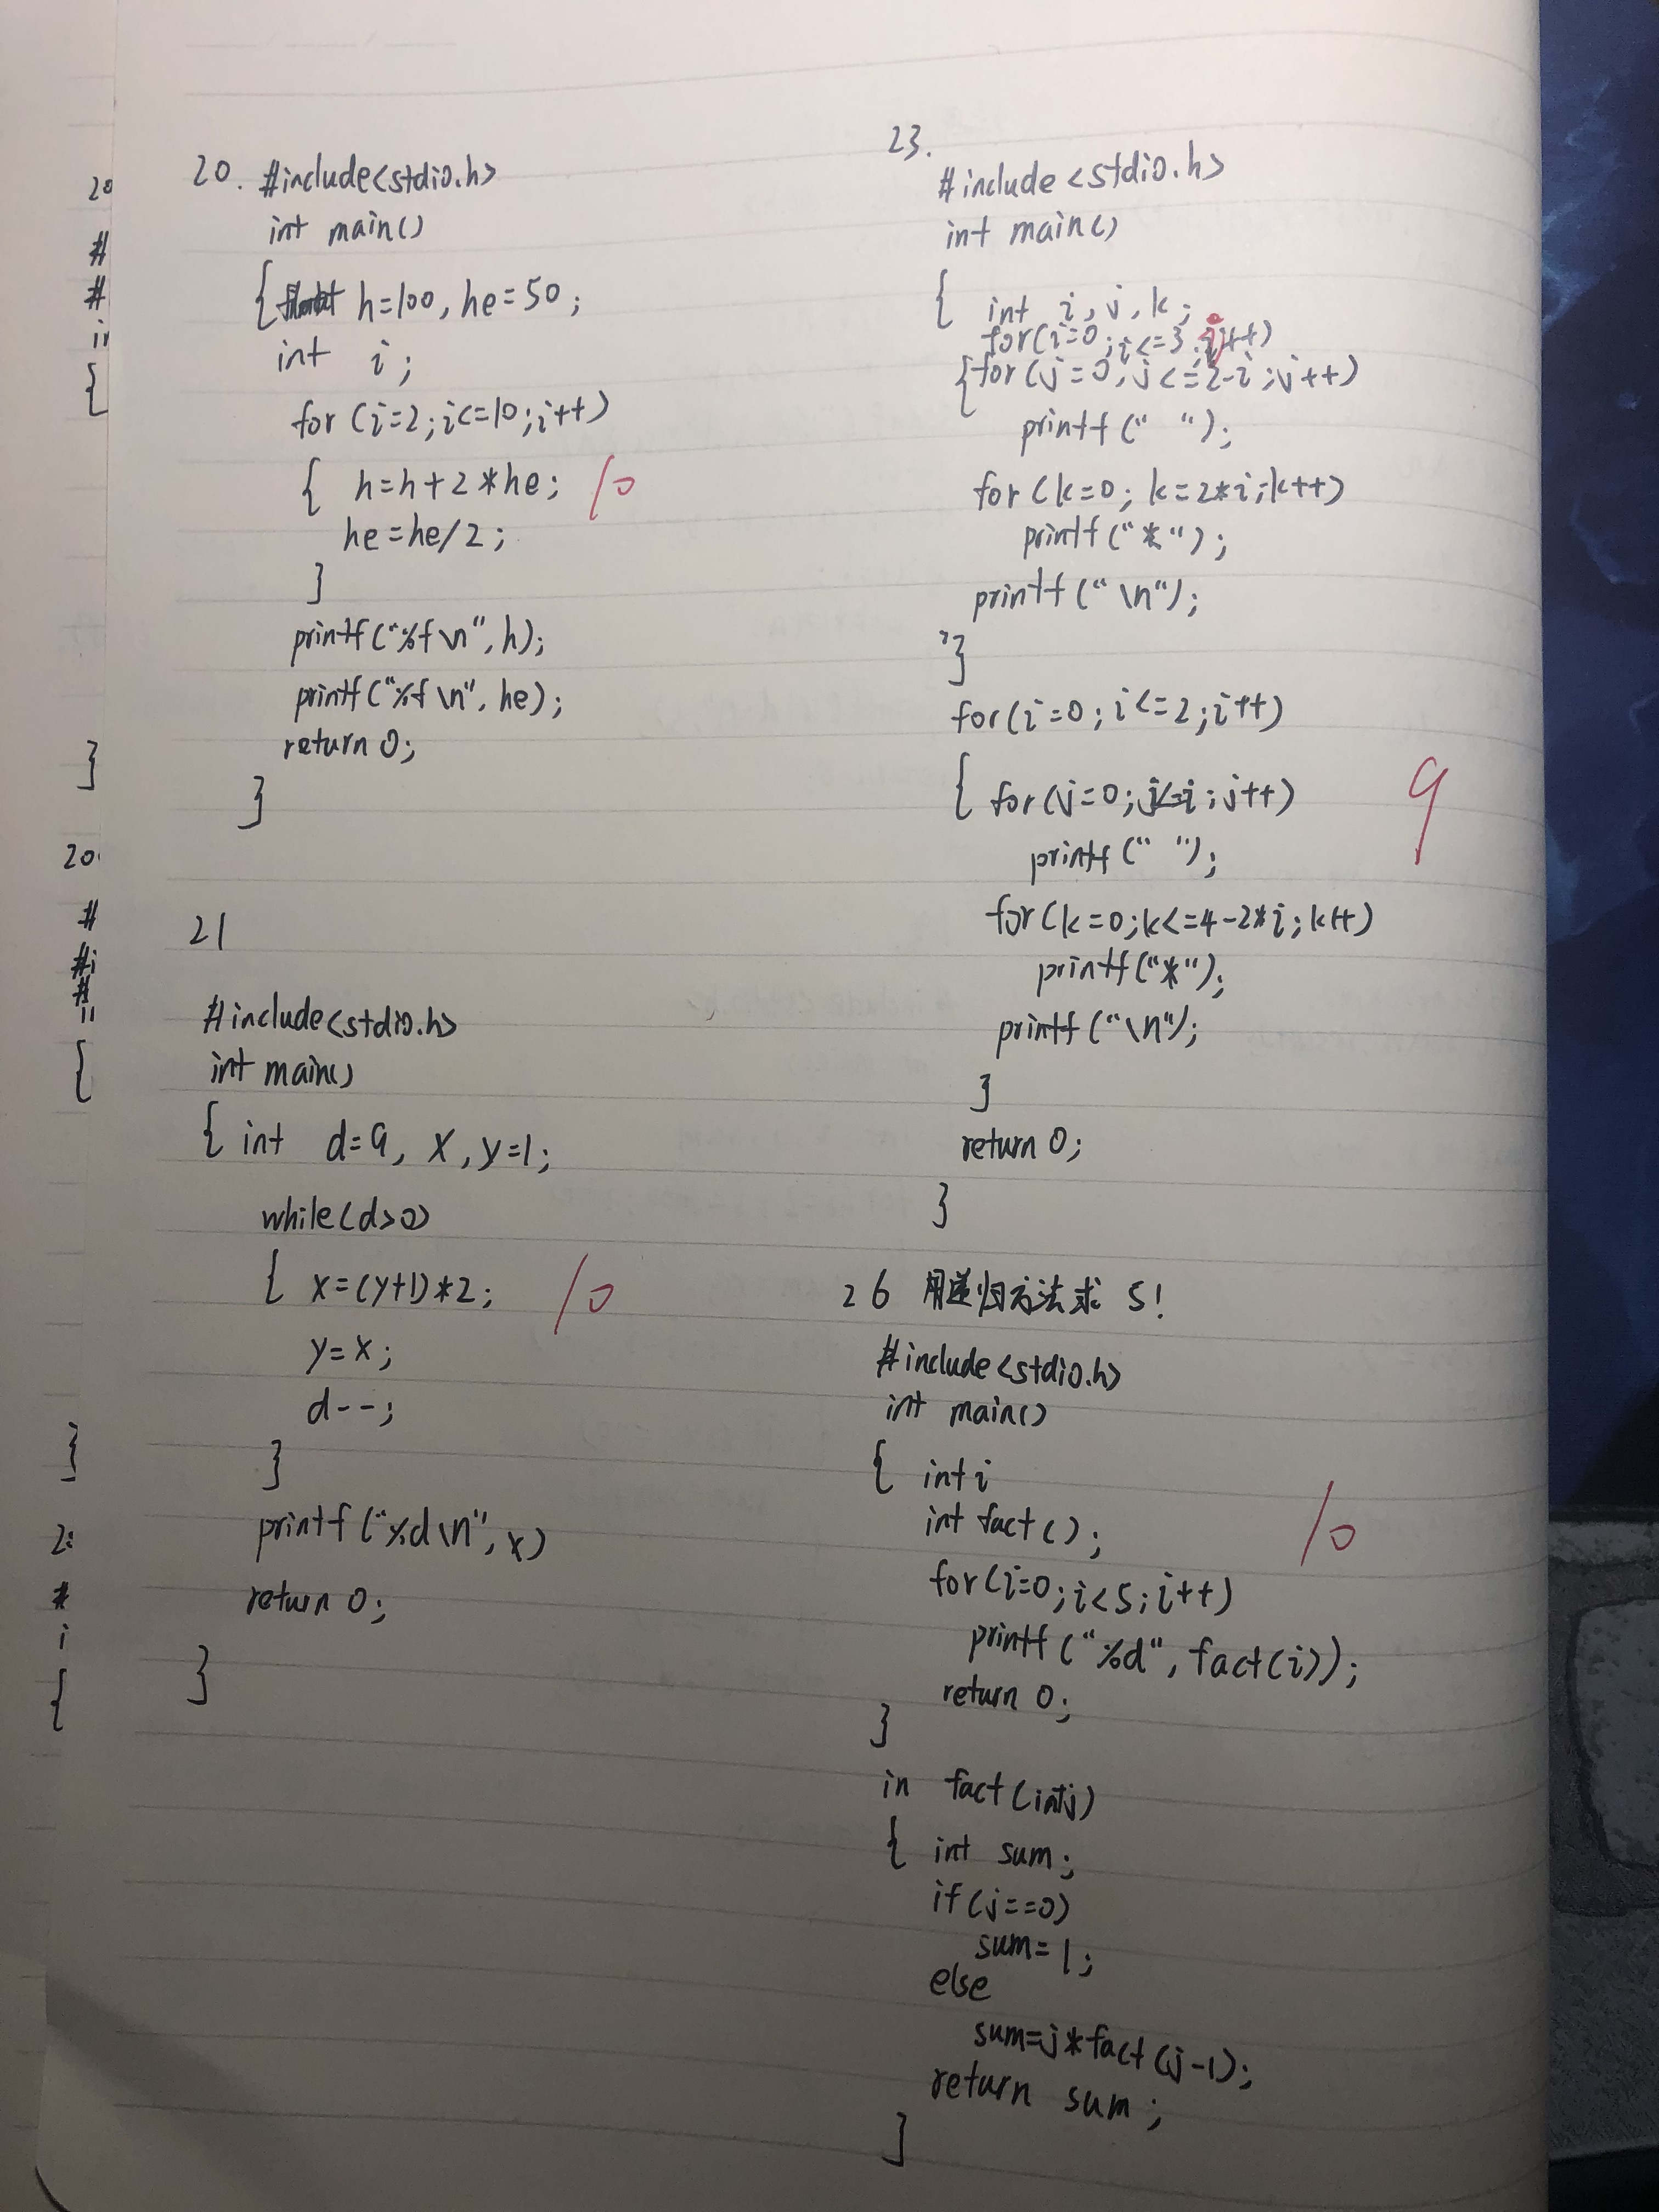 20. #include<stdio.h>
int main()
{float h=100, he=50;
int i;
for (i=2;i<=10;i++)
{ h=h+2*he; 10
he=he/2;
}
printf("%f\n", h);
printf("%f\n", he);
return 0;
}
21
#include<stdio.h>
int main()
{ int d=9, x, y=1;
while(d>0)
{ x=(y+1)*2; 10
y=x;
d--;
}
printf("%d\n", x)
return 0;
}
23.
#include<stdio.h>
int main()
{ int i, j, k;
for(i=0;i<=3;i++)
{for(j=0;j<=2-i;j++)
printf(" ");
for(k=0; k=2*i;k++)
printf("*");
printf("\n");
}
for(i=0;i<=2;i++)
{ for(j=0;j<=i;j++) 9
printf(" ");
for(k=0;k<=4-2*i;k++)
printf("*");
printf("\n");
}
return 0;
}
26 用递归方法求 5!
#include<stdio.h>
int main()
{ int i
int fact(); 10
for(i=0;i<5;i++)
printf("%d", fact(i));
return 0;
}
in fact(intj)
{ int sum;
if(j==0)
sum=1;
else
sum=j*fact(j-1);
return sum;
}
20
#
#
{
}
20
#
#i
#
{
}
2:
#
i
{